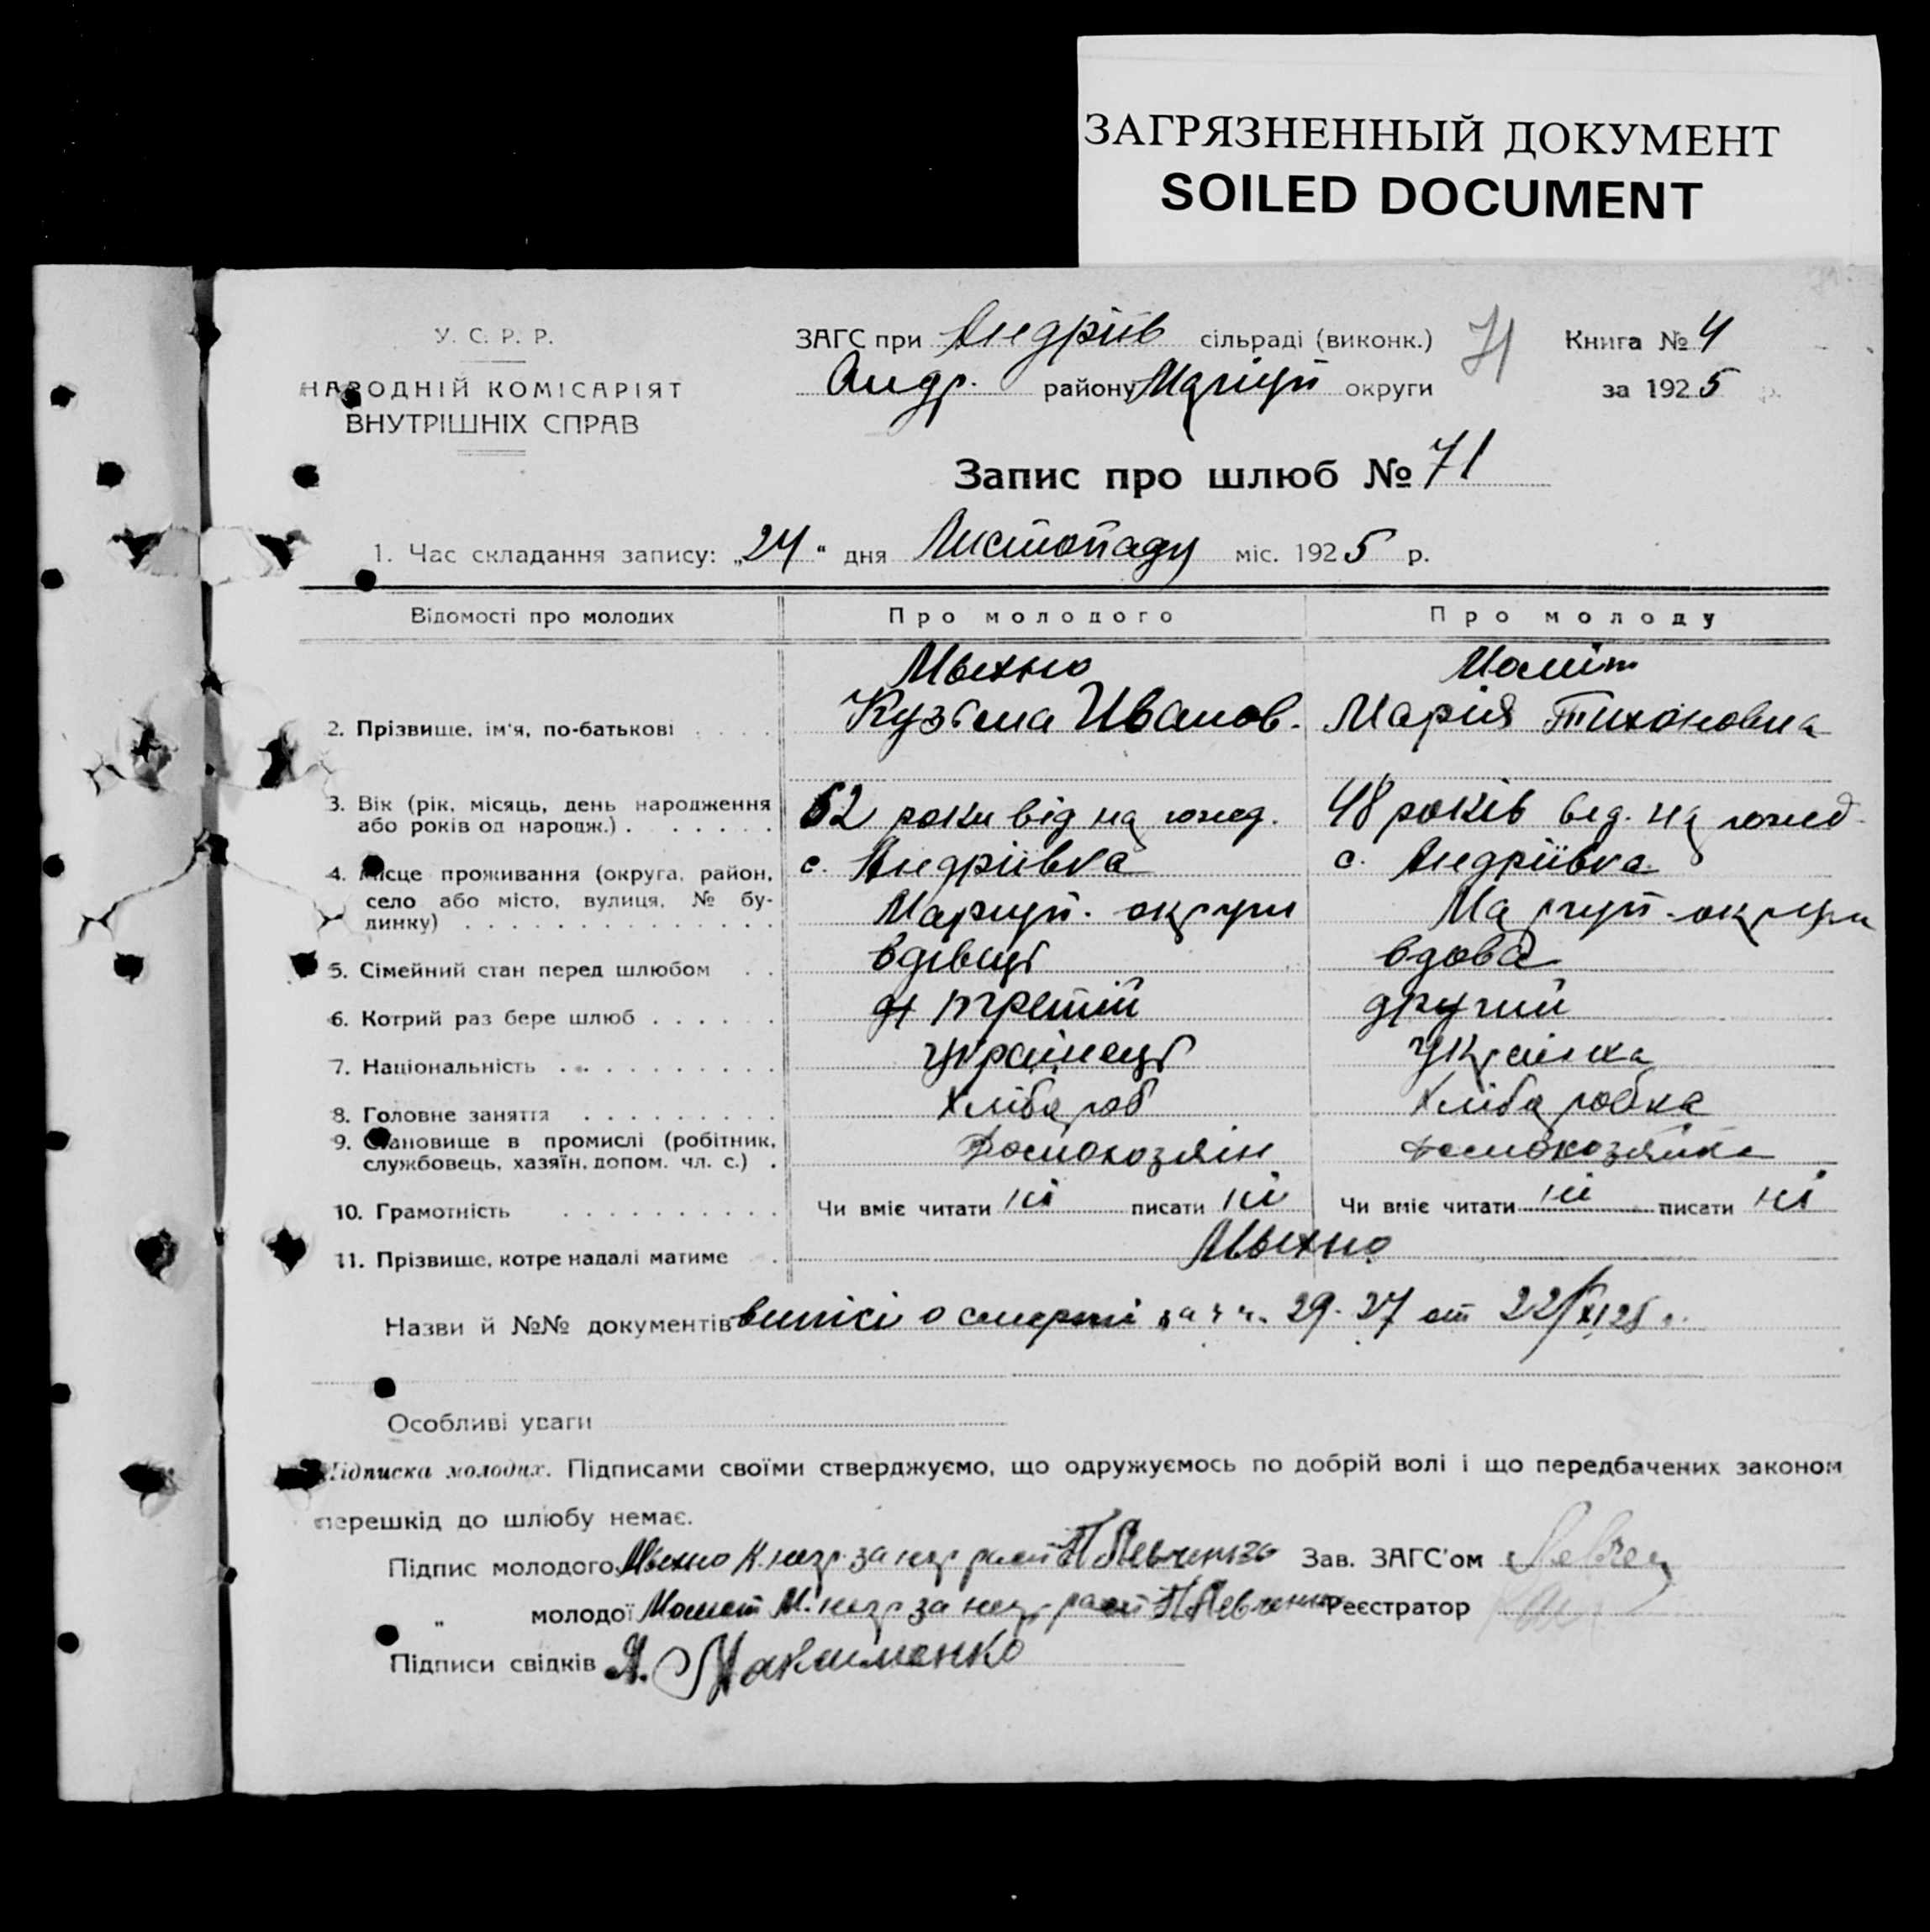 ЗАГРЯЗНЕННЫЙ ДОКУМЕНТ
SOILED DOCUMENT
У. С. Р. Р.
НАРОДНІЙ КОМІСАРІЯТ
ВНУТРІШНІХ СПРАВ
ЗАГС при Андріїв сільраді (виконк.) 71 Книга № 4
Андр. району Маріуп округи за 1925 р.
Запис про шлюб № 71
1. Час складання запису: „24“ дня Листопаду міс. 1925 р.
Відомості про молодих Про молодого Про молоду
Мам
2. Прізвище, ім'я, по-батькові Кузьма Иванов. Марія Тихоновна
3. Вік (рік, місяць, день народження
або років од народж.) 62 роки від народ. 48 років від. народ
4. Місце проживання (округа, район, с. Андріївка с. Андріївка
село або місто, вулиця, № бу-
динку) Маріуп. округи Маріуп. округи
5. Сімейний стан перед шлюбом вдівець вдова
6. Котрий раз бере шлюб третій другий
7. Національність українець українка
8. Головне заняття хлібороб хлiборобка
9. Становище в промислі (робітник,
службовець, хазяїн, допом. чл. с.) домохозяін домохозяйка
10. Грамотність Чи вміє читати ні писати ні Чи вміє читати ні писати ні
11. Прізвище, котре надалі матиме
Назви й №№ документів виписі о смерті за чч. 29. 27 от 22/XI 25 р.
Особливі уваги
Підписка молодих. Підписами своїми стверджуємо, що одружуємось по добрій волі і що передбачених законом
перешкід до шлюбу немає.
Підпис молодого К. негр. за негр. расп П Левченко Зав. ЗАГС'ом
„ молодої М. негр за негр. расп П Левченко Реєстратор
Підписи свідків Максименко